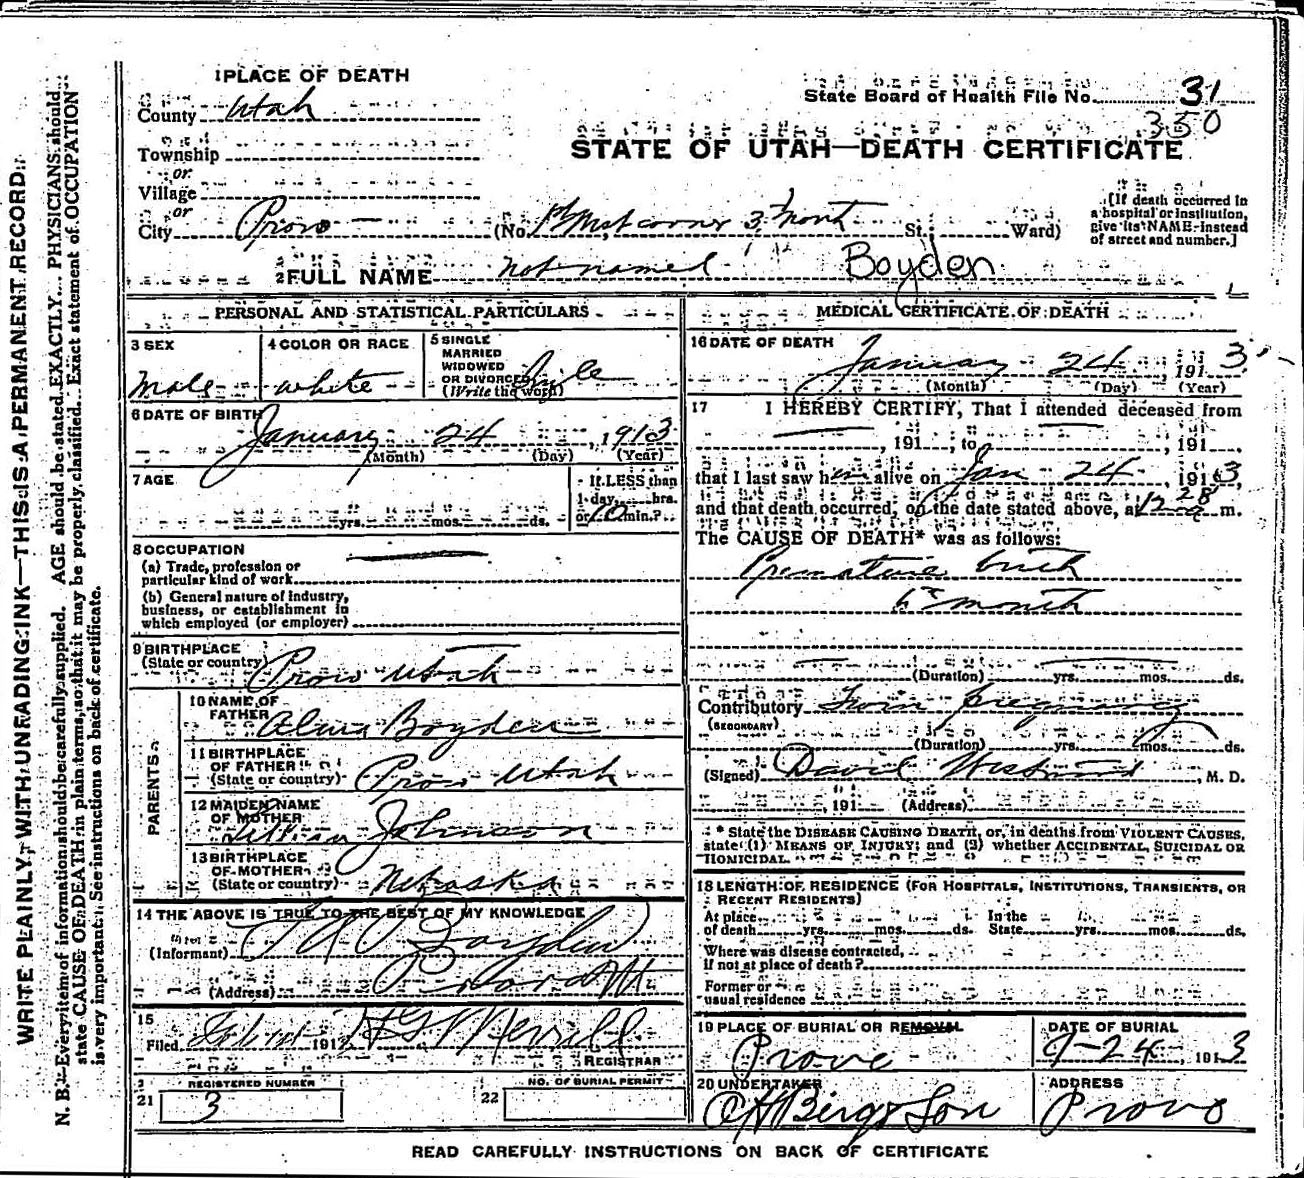 1 PLACE OF DEATH
County Utah
Township
or
Village
or
City Provo
(No. corner 3 St.; Ward)
State Board of Health File No. 31
350
STATE OF UTAH—DEATH CERTIFICATE
[If death occurred in
a hospital or institution,
give its NAME instead
of street and number.]
2 FULL NAME not named Boyden
PERSONAL AND STATISTICAL PARTICULARS
3 SEX
Male
4 COLOR OR RACE
white
5 SINGLE
MARRIED
WIDOWED
OR DIVORCED
(Write the word)
Single
6 DATE OF BIRTH
January 24, 1913
(Month) (Day) (Year)
7 AGE
yrs. mos. ds.
If LESS than
1 day, hrs.
or 10 min.?
8 OCCUPATION
(a) Trade, profession or
particular kind of work
(b) General nature of industry,
business, or establishment in
which employed (or employer)
9 BIRTHPLACE
(State or country)
Provo Utah
PARENTS
10 NAME OF
FATHER
Boyden
11 BIRTHPLACE
OF FATHER
(State or country)
Provo Utah
12 MAIDEN NAME
OF MOTHER
Lillian Johnson
13 BIRTHPLACE
OF MOTHER
(State or country)
Nebraska
14 THE ABOVE IS TRUE TO THE BEST OF MY KNOWLEDGE
(Informant) Boyden
(Address) Provo Ut.
15
Filed 191 Merrill
REGISTRAR
REGISTERED NUMBER
21 3
NO. OF BURIAL PERMIT
22
MEDICAL CERTIFICATE OF DEATH
16 DATE OF DEATH
January 24, 1913
(Month) (Day) (Year)
17 I HEREBY CERTIFY, That I attended deceased from
, 191 , to , 191
that I last saw him alive on Jan 24, 1913,
and that death occurred, on the date stated above, at 12 m.
The CAUSE OF DEATH* was as follows:
Premature birth
6 month
(Duration) yrs. mos. ds.
Contributory Twin pregnancy
(SECONDARY)
(Duration) yrs. mos. ds.
(Signed) David Westwood, M. D.
, 191 (Address)
* State the DISEASE CAUSING DEATH, or, in deaths from VIOLENT CAUSES,
state (1) MEANS OF INJURY; and (2) whether ACCIDENTAL, SUICIDAL OR
HOMICIDAL.
18 LENGTH OF RESIDENCE (FOR HOSPITALS, INSTITUTIONS, TRANSIENTS, OR
RECENT RESIDENTS)
At place
of death yrs. mos. ds. In the
State yrs. mos. ds.
Where was disease contracted,
if not at place of death?
Former or
usual residence
19 PLACE OF BURIAL OR REMOVAL
Provo
DATE OF BURIAL
24, 1913
20 UNDERTAKER
Berg & Son
ADDRESS
Provo
READ CAREFULLY INSTRUCTIONS ON BACK OF CERTIFICATE
WRITE PLAINLY, WITH UNFADING INK—THIS IS A PERMANENT RECORD.
N. B.—Every item of information should be carefully supplied. AGE should be stated EXACTLY. PHYSICIANS should
state CAUSE OF DEATH in plain terms, so that it may be properly classified. Exact statement of OCCUPATION
is very important. See instructions on back of certificate.